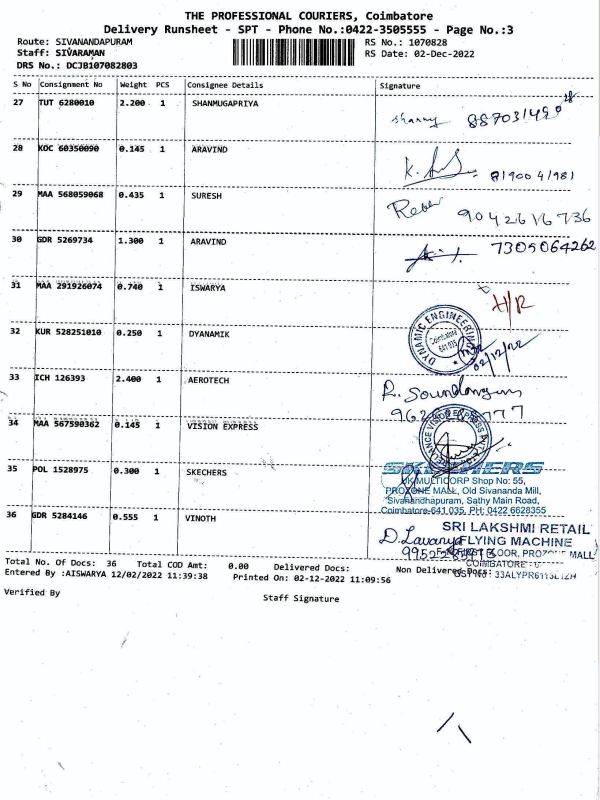 THE PROFESSIONAL COURIERS, Coimbatore
Delivery Runsheet - SPT - Phone No.:0422-3505555 - Page No.:3
Route: SIVANANDAPURAM
RS No.: 1070828
Staff: SIVARAMAN
RS Date: 02-Dec-2022
DRS No.: DCJB107082803
S No Consignment No Weight PCS Consignee Details Signature
27 TUT 6280010 2.200 1 SHANMUGAPRIYA
28 KOC 60350090 0.145 1 ARAVIND
81900 41981
29 MAA 568059068 0.435 1 SURESH
9042616736
30 GDR 5269734 1.300 1 ARAVIND
7305064262
31 MAA 291926074 0.740 1 ISWARYA
H/R
32 KUR 528251010 0.250 1 DYANAMIK
DYNAMIC ENGINEERING
Coimbatore
641 035
02/12/22
33 ICH 126393 2.400 1 AEROTECH
34 MAA 567590362 0.145 1 VISION EXPRESS
35 POL 1528975 0.300 1 SKECHERS
SKECHERS
MULTICORP Shop No: 55,
PROZONE MALL, Old Sivananda Mill,
Sivanandhapuram, Sathy Main Road,
Coimbatore-641 035, PH: 0422 6628355
36 GDR 5284146 0.555 1 VINOTH
SRI LAKSHMI RETAIL
D. Lavanya FLYING MACHINE
FLOOR, PROZONE MALL
COIMBATORE
Total No. Of Docs: 36 Total COD Amt: 0.00 Delivered Docs: Non Delivered Docs:
Entered By :AISWARYA 12/02/2022 11:39:38 Printed On: 02-12-2022 11:09:56
Verified By
Staff Signature